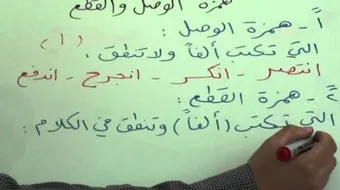 همزة الوصل والقطع
أ - همزة الوصل :
( ا )
التي تكتب ألفاً ولا تنطق .
انتصر - انكسر - انجرح - اندفع
٢ - همزة القطع :
التي تكتب (ألفاً) وتنطق في الكلام :